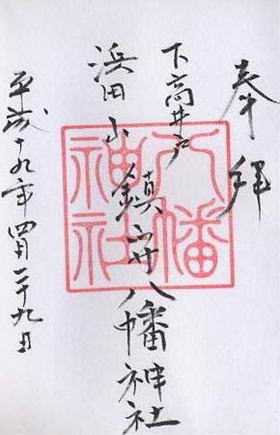 奉拝
下高井戸
浜田山
鎮守八幡神社
八幡神社
平成十九年四月二十九日